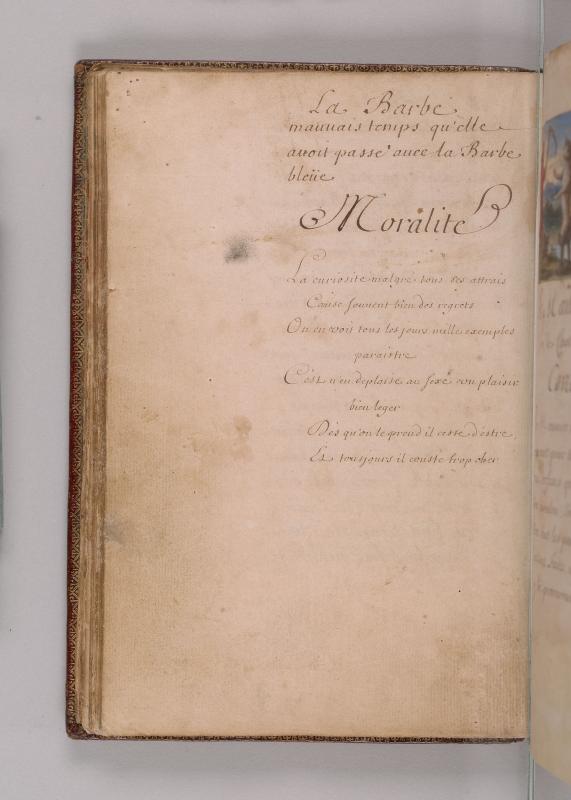 La Barbe
mauuais temps qu'elle
auoit passé auec la Barbe
bleüe
Moralité
La curiosité malgré tous ses attrais
Cause souuent bien des regrets
On en voit tous les jours mille exemples
paraistre
C'est n'en deplaise au sexe vn plaisir
bien leger
Dés qu'on le prend il cesse d'estre
Et tousjours il couste trop cher